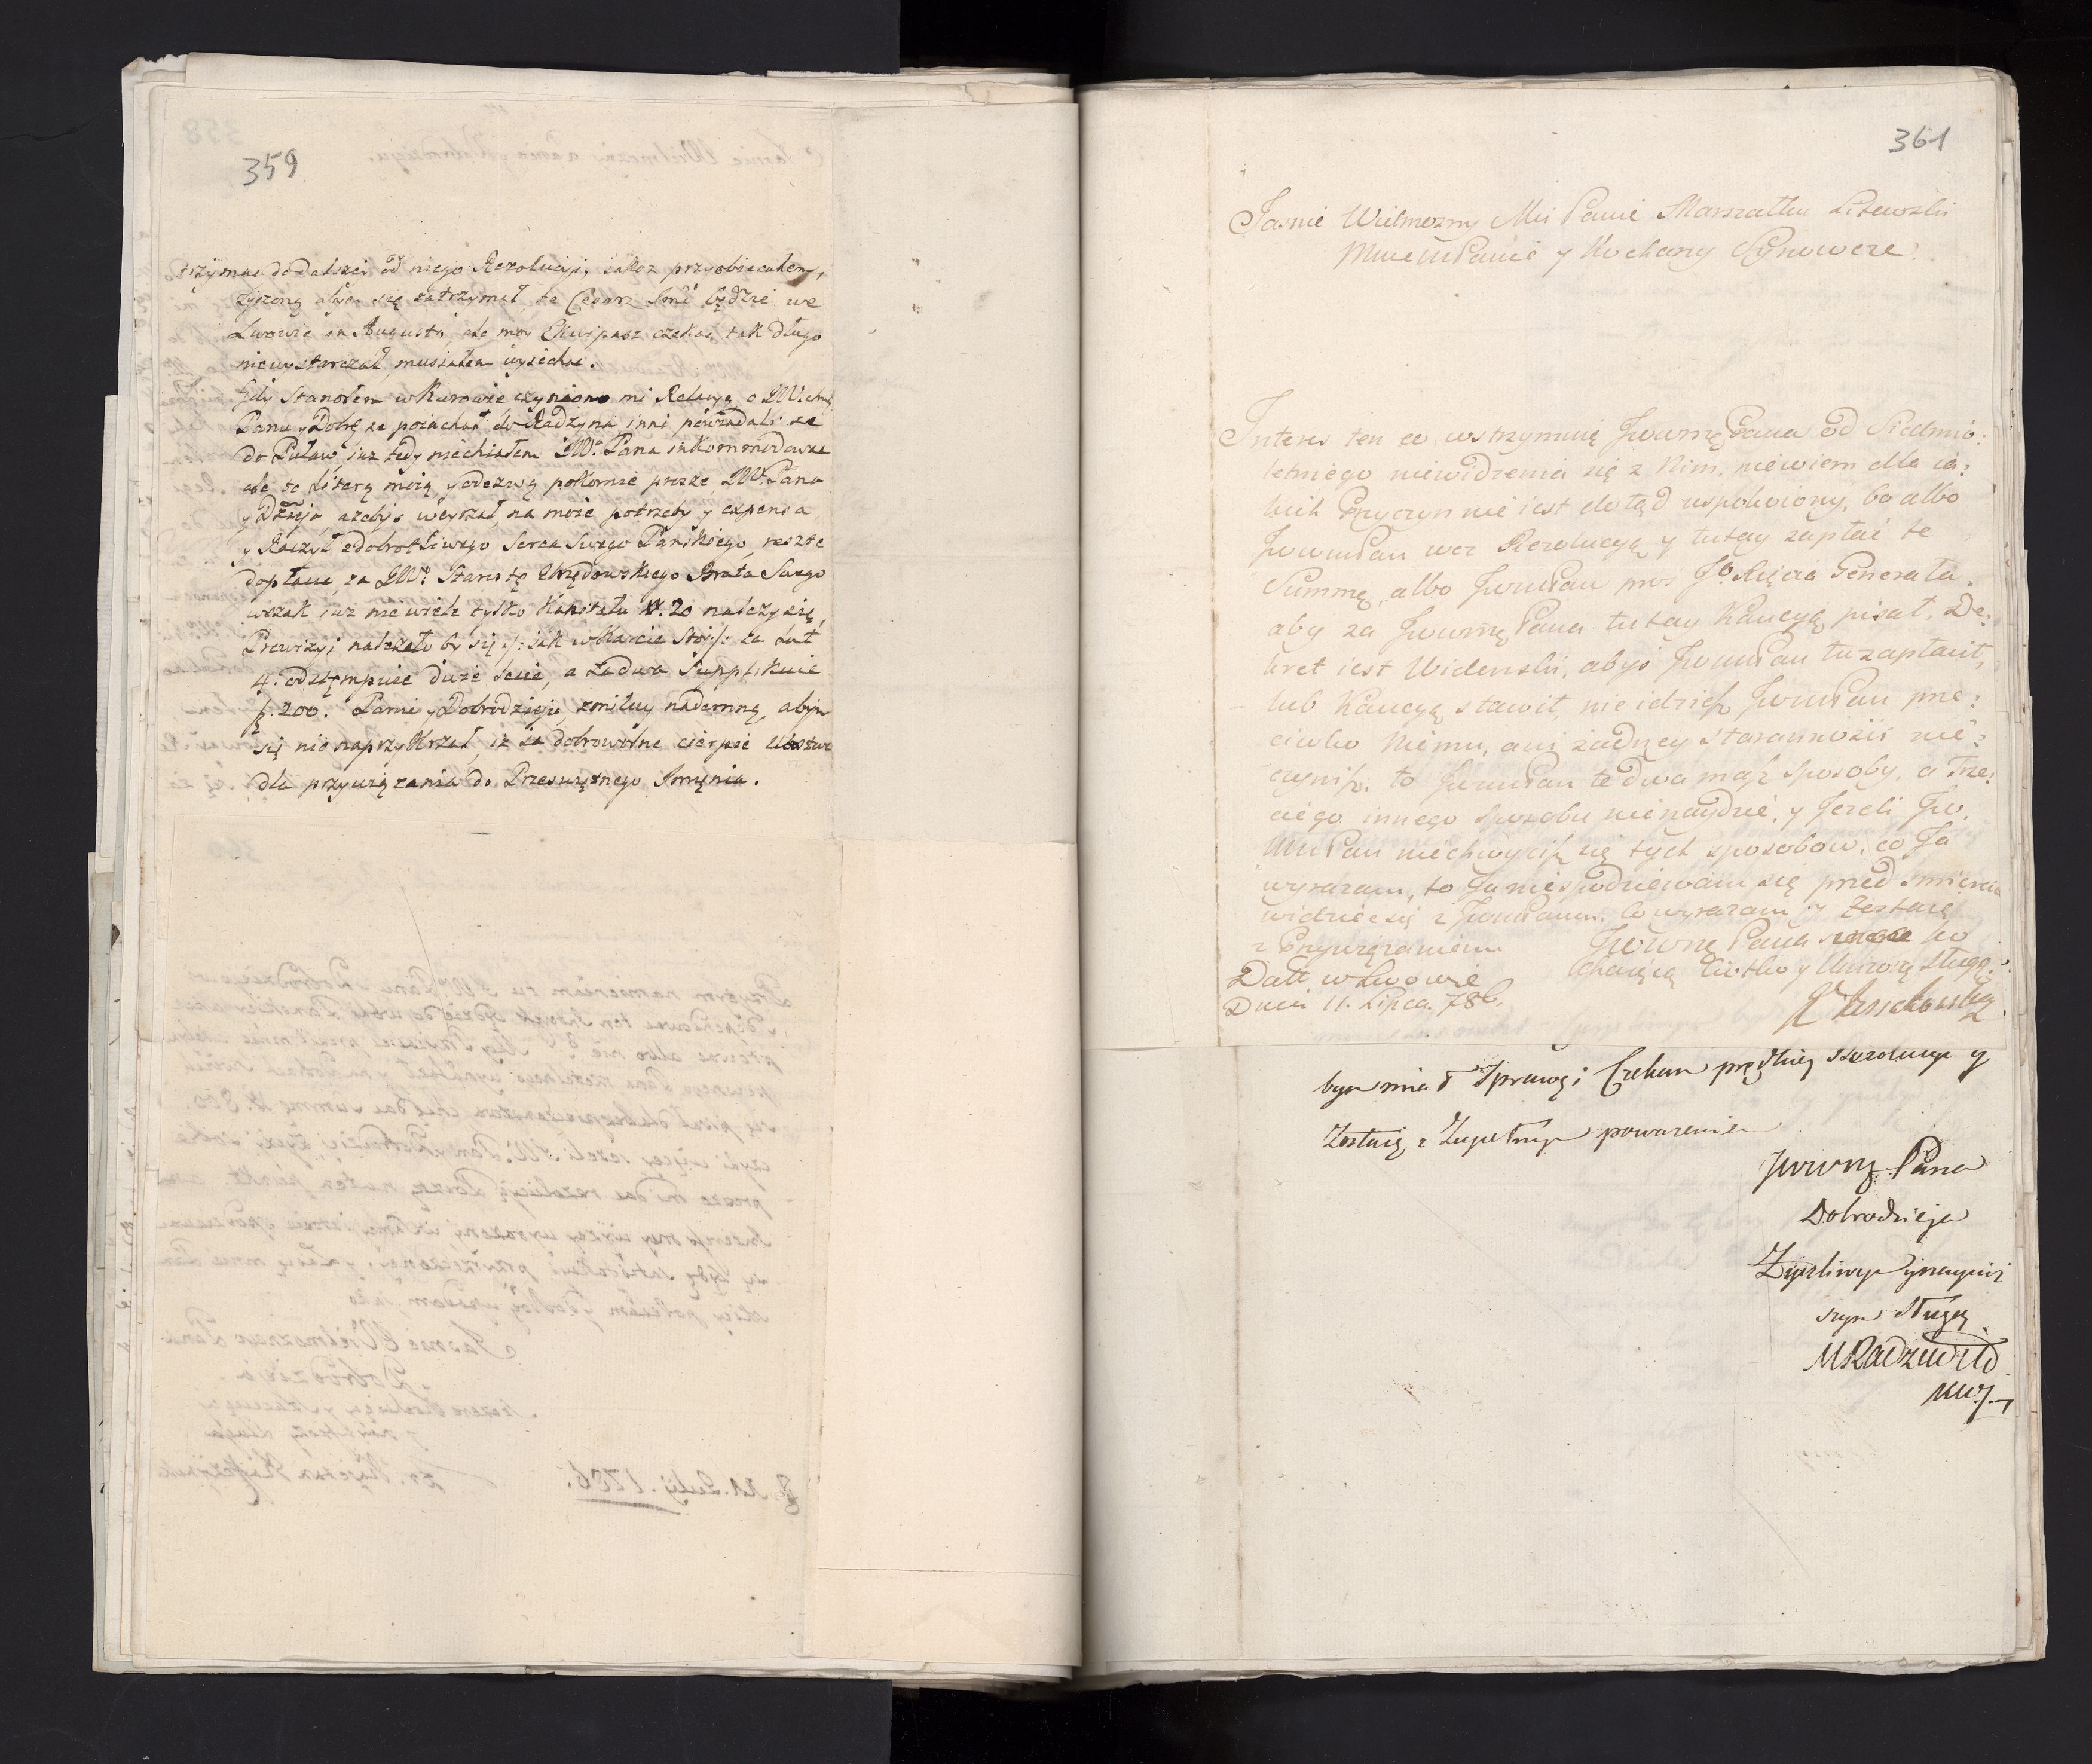 359
trzymac do dalszei od niego Rezolucji, jakoz przyobiecałem,
życzono abym się zatrzymał, że Cesarz Jmć będzie we
Lwowie in Augusto ale moy Ekwipasz czekać tak długo
niewystarczał, musiałem wyiechać.
Gdy Stanołem w Kurowie, czyniono mi Relacyą o JW.
Panu y Dobrę ze poiachał do Radzynia inni powiadali ze
do Puław, iuz tedy niechciałem JWo. Pana inkommodowac
ale tą literą moią y odezwą pokornie proszę, JWo. Pana
y Dzieja, azebys weyrzał, na moie potrzeby y expensa
y Raczył z dobrotliwego Serca Swego Pańskiego, resztę
dopłacić, za JWo. Starostę Urzędowskiego Brata Swego
wszak iuz niewiele tylko Kapitału #. 20 należy się,
Prowizyi należało by się /: iak w Karcie stoi :/ za Lat
4. odstępuie duzo sobie, a Ledwo Supplikuie
f. 200. Panie y Dobrodzieju, zmiłuy nademną, abym
się nienaprzykrzał, iz za dobrowolne cierpię
dla przywiązania do Prześwietnego Imienia.
361
Jasnie Wielmozny Mci Panie Marszałku Litewski
Mnie Panie y Kochany Synowcze.
Interes ten co wstrzymuię Jwwmę Pana od Siedmio:
letniego niewidzenia się z Nim, niewiem dla ia:
kich Przyczyn nie iest dotąd uspokoiony, bo albo
JwwmPan weź Rezolucyą y tutay zapłać te
Summę, albo JwwmPan proś JO Xięcia Generała,
aby za Jwwmę Pana tutay Kaucyą pisał. De:
kret iest Widenski, abyś JwwmPan tu zapłacił,
lub Kaucyą stawił, nie idziesz JwwmPan prze:
ciwko Niemu, ani żadney staranności nie:
czynisz, to JwwmPan te dwa masz sposoby, a Trze:
ciego innego sposobu nienaydzie, y Jezeli Jw.
WmPan niechwycisz się tych sposobow, co Ja
wyrazam, to Ja niespodziewam się przed smiercią
widziec się z JwwmPanem. Co wyrazam y Zostaię
z Przywiązaniem Jwwmę Pana ko
Datt w Lwowie chaiącą Ciotką y Unizoną sługą.
Dnia 11. Lipca. 786.
bym miał Sprawę i Czekam prędkiey Rezolucyi y
Zostaię z Zupełnym powazeniem
Jwwmę Pana
Dobrodzieja
Zyczliwym y nayniż
szym sługą
M Radziwiłł